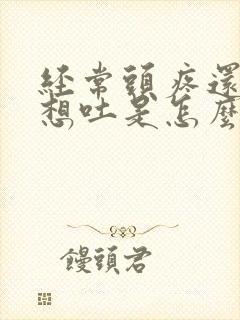 經常頭疼還
想吐是怎麼
饅頭君